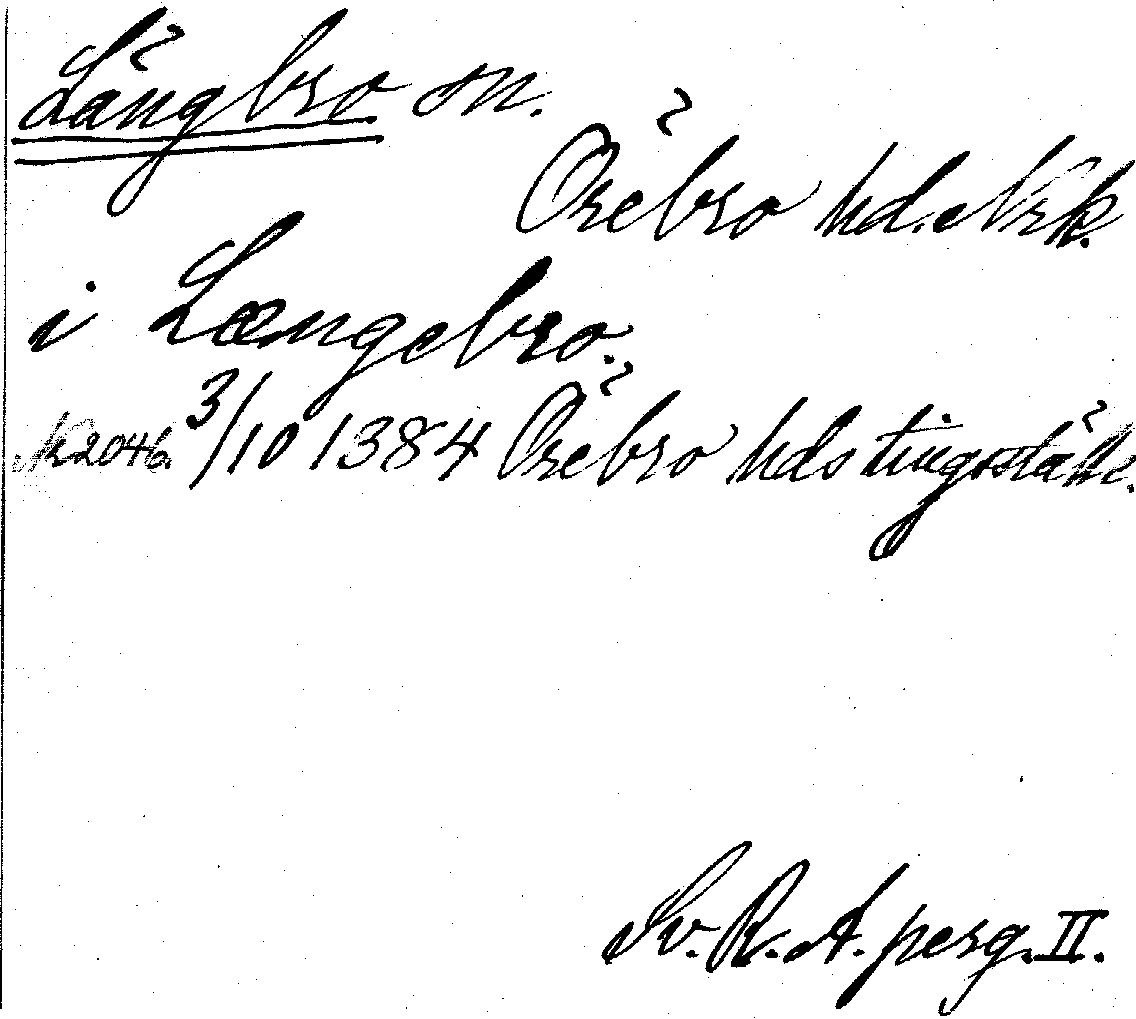 Längbro sn.
Örebro hd. Nrk.
i Længebro.
N:2046. 3/10 1384 Örebro hds tingsställe.
Sv. R. A. perg. II.